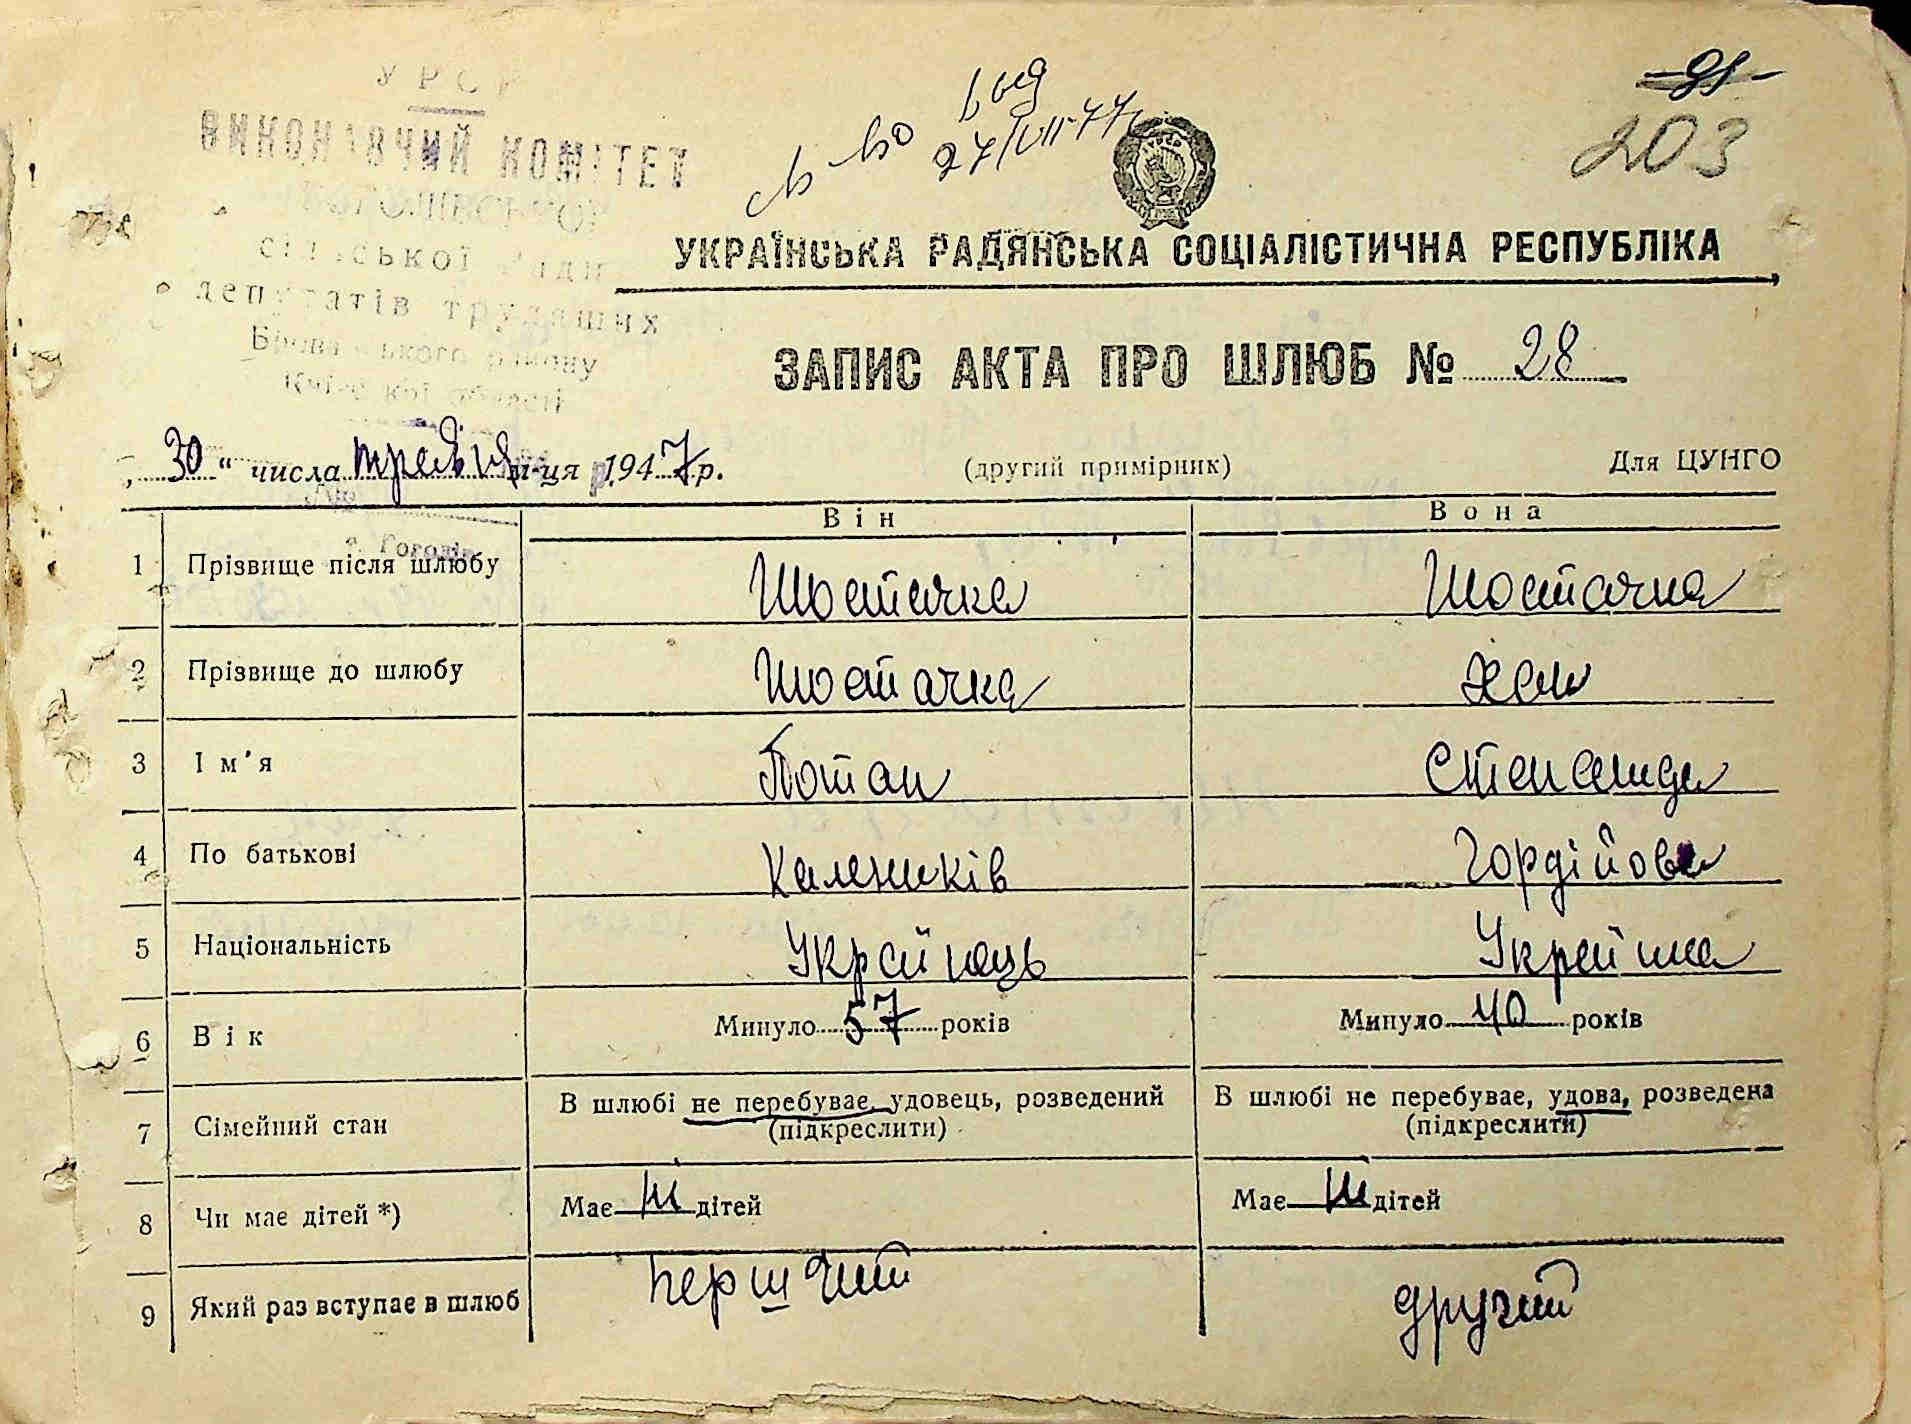 -91-
203
УРСР
ВИКОНАВЧИЙ КОМІТЕТ
сільської Ради
депутатів трудящих
вид
27/VII-77
УКРАЇНСЬКА РАДЯНСЬКА СОЦІАЛІСТИЧНА РЕСПУБЛІКА
ЗАПИС АКТА ПРО ШЛЮБ № 28
району
Київської області
„30“ числа травня м-ця 1947 р.
(другий примірник)
Для ЦУНГО
с. Гоголів
Він Вона
1 Прізвище після шлюбу Шостачка Шостачка
2 Прізвище до шлюбу Шостачка
3 Ім'я Потап Степанида
4 По батькові Калеників Гордійовн
5 Національність Українець Українка
6 Вік Минуло 57 років Минуло 40 років
7 Сімейний стан В шлюбі не перебуває, удовець, розведений (підкреслити) В шлюбі не перебуває, удова, розведена (підкреслити)
8 Чи має дітей *) Має ні дітей Має ні дітей
9 Який раз вступає в шлюб перший другий